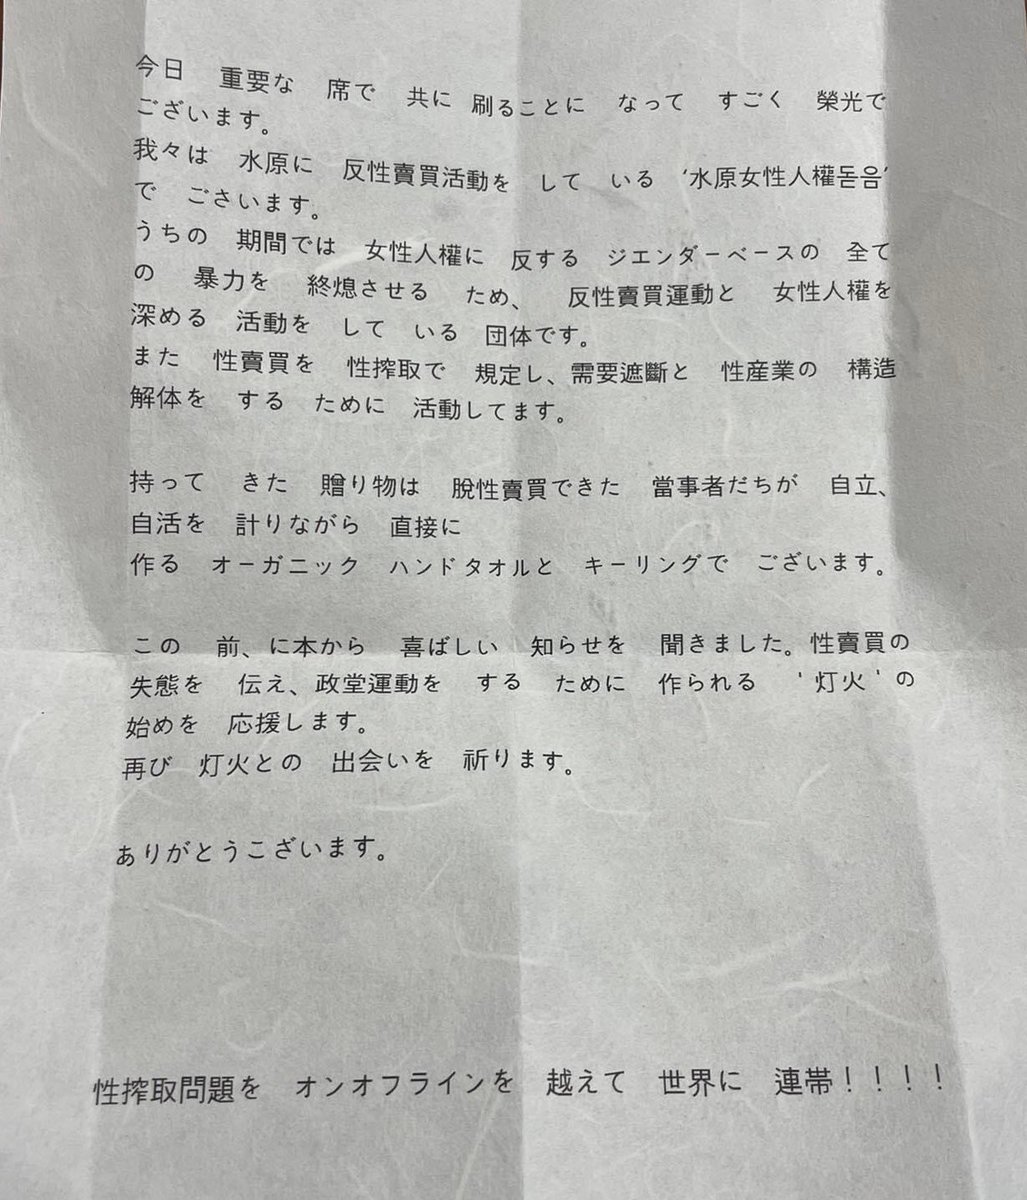 今日　重要な　席で　共に　刷ることに　なって　すごく　榮光で
ございます。
我々は　水原に　反性賣買活動を　して　いる　‘水原女性人權돋음’
で　ございます。
うちの　期間では　女性人權に　反する　ジエンダーベースの　全て
の　暴力を　終熄させる　ため、　反性賣買運動と　女性人權を
深める　活動を　して　いる　団体です。
また　性賣買を　性搾取で　規定し、需要遮斷と　性産業の　構造
解体を　する　ために　活動してます。
持って　きた　贈り物は　脫性賣買できた　當事者だちが　自立、
自活を　計りながら　直接に
作る　オーガニック　ハンドタオルと　キーリングで　ございます。
この　前、に本から　喜ばしい　知らせを　聞きました。性賣買の
失態を　伝え、政堂運動を　する　ために　作られる　'灯火'の
始めを　応援します。
再び　灯火との　出会いを　祈ります。
ありがとうこざいます。
性搾取問題を　オンオフラインを　越えて　世界に　連帯！！！！